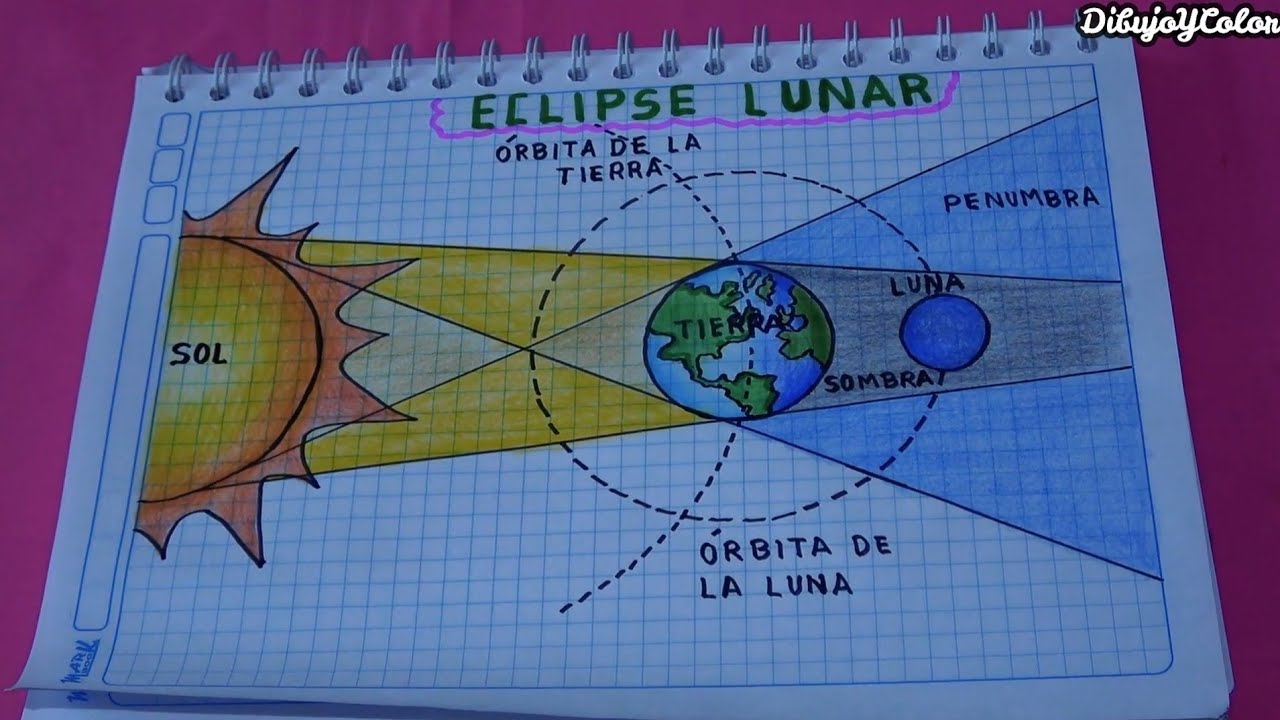 DibujoYColor
ECLIPSE LUNAR
ÓRBITA DE LA
TIERRA
PENUMBRA
LUNA
TIERRA
SOL
SOMBRA
ÓRBITA DE
LA LUNA